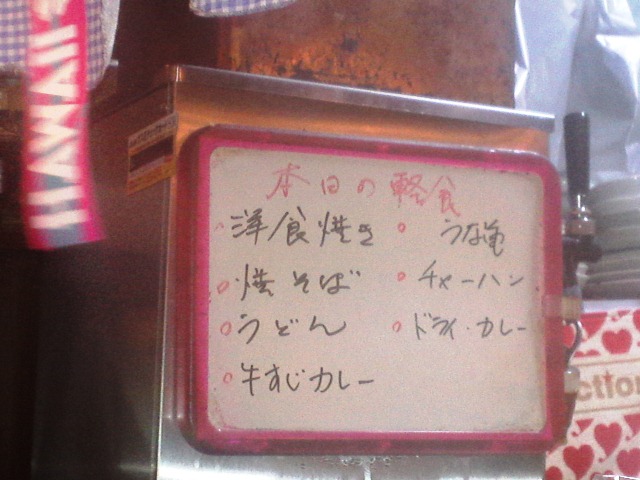 HAWAII
本日の軽食
洋食焼き
焼そば
うどん
牛すじカレー
うな亀
チャーハン
ドライ・カレー
ction